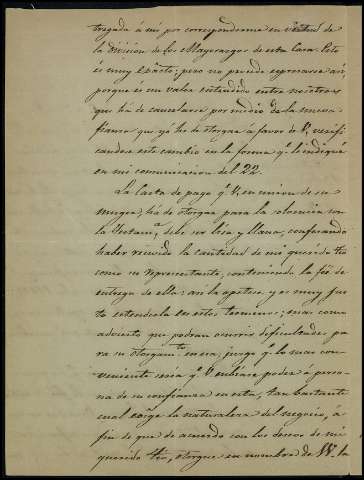 tregada á mi por corresponderme en virtud de
la division de los Mayorazgos de esta Casa. Esto
es muy exacto; pero no puede espresarse asi,
porque es un valor entendido entre nosotros
que ha de cancelarse por medio de la nueva
fianza que yo he de otorgar á favor de V. verifi
candose este cambio en la forma qe. le indiqué
en mi comunicacion del 22.
La Carta de pago qe. V. en union de su
muger, ha de otorgar para la solvencia con
la Testamria. debe ser lisa y llana, confesando
haber recibido la cantidad de mi querido tio
como su representante, conteniendo la fé de
entrega de ella: asi la apetece y es muy jus
to estenderla en estos terminos; mas como
advierto que podran ocurrir dificultades pa
ra su otorgamto. en esa, juzgo qe. lo mas con
veniente seria qe. V. enviase poder á perso
na de su confianza en esta, tan bastante
cual exige la naturaleza del negocio, á
fin de que de acuerdo con los deseos de mi
querido tio, otorgue en nombre de VV. la